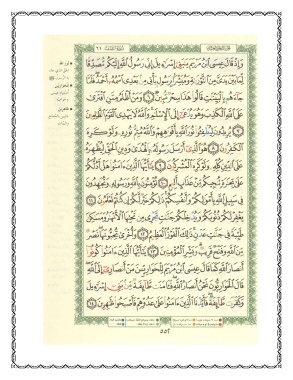 وَإِذْ قَالَ عِيسَى ابْنُ مَرْيَمَ يَٰبَنِىٓ إِسْرَٰٓءِيلَ إِنِّى رَسُولُ ٱللَّهِ إِلَيْكُم مُّصَدِّقًا
لِّمَا بَيْنَ يَدَىَّ مِنَ ٱلتَّوْرَىٰةِ وَمُبَشِّرًۢا بِرَسُولٍ يَأْتِى مِنۢ بَعْدِى ٱسْمُهُۥٓ أَحْمَدُ فَلَمَّا
جَآءَهُم بِٱلْبَيِّنَٰتِ قَالُوا۟ هَٰذَا سِحْرٌ مُّبِينٌ ٦ وَمَنْ أَظْلَمُ مِمَّنِ ٱفْتَرَىٰ
عَلَى ٱللَّهِ ٱلْكَذِبَ وَهُوَ يُدْعَىٰٓ إِلَى ٱلْإِسْلَٰمِ وَٱللَّهُ لَا يَهْدِى ٱلْقَوْمَ ٱلظَّٰلِمِينَ
٧ يُرِيدُونَ لِيُطْفِـُٔوا۟ نُورَ ٱللَّهِ بِأَفْوَٰهِهِمْ وَٱللَّهُ مُتِمُّ نُورِهِۦ وَلَوْ كَرِهَ
ٱلْكَٰفِرُونَ ٨ هُوَ ٱلَّذِىٓ أَرْسَلَ رَسُولَهُۥ بِٱلْهُدَىٰ وَدِينِ ٱلْحَقِّ لِيُظْهِرَهُۥ
عَلَى ٱلدِّينِ كُلِّهِۦ وَلَوْ كَرِهَ ٱلْمُشْرِكُونَ ٩ يَٰٓأَيُّهَا ٱلَّذِينَ ءَامَنُوا۟ هَلْ أَدُلُّكُمْ
عَلَىٰ تِجَٰرَةٍ تُنجِيكُم مِّنْ عَذَابٍ أَلِيمٍ ١٠ تُؤْمِنُونَ بِٱللَّهِ وَرَسُولِهِۦ وَتُجَٰهِدُونَ
فِى سَبِيلِ ٱللَّهِ بِأَمْوَٰلِكُمْ وَأَنفُسِكُمْ ذَٰلِكُمْ خَيْرٌ لَّكُمْ إِن كُنتُمْ تَعْلَمُونَ ١١
يَغْفِرْ لَكُمْ ذُنُوبَكُمْ وَيُدْخِلْكُمْ جَنَّٰتٍ تَجْرِى مِن تَحْتِهَا ٱلْأَنْهَٰرُ وَمَسَٰكِنَ
طَيِّبَةً فِى جَنَّٰتِ عَدْنٍ ذَٰلِكَ ٱلْفَوْزُ ٱلْعَظِيمُ ١٢ وَأُخْرَىٰ تُحِبُّونَهَا نَصْرٌ
مِّنَ ٱللَّهِ وَفَتْحٌ قَرِيبٌ وَبَشِّرِ ٱلْمُؤْمِنِينَ ١٣ يَٰٓأَيُّهَا ٱلَّذِينَ ءَامَنُوا۟ كُونُوٓا۟
أَنصَارَ ٱللَّهِ كَمَا قَالَ عِيسَى ٱبْنُ مَرْيَمَ لِلْحَوَارِيِّـۧنَ مَنْ أَنصَارِىٓ إِلَى ٱللَّهِ
قَالَ ٱلْحَوَارِيُّونَ نَحْنُ أَنصَارُ ٱللَّهِ فَـَٔامَنَت طَّآئِفَةٌ مِّنۢ بَنِىٓ إِسْرَٰٓءِيلَ
وَكَفَرَت طَّآئِفَةٌ فَأَيَّدْنَا ٱلَّذِينَ ءَامَنُوا۟ عَلَىٰ عَدُوِّهِمْ فَأَصْبَحُوا۟ ظَٰهِرِينَ ١٤
٥٥٢